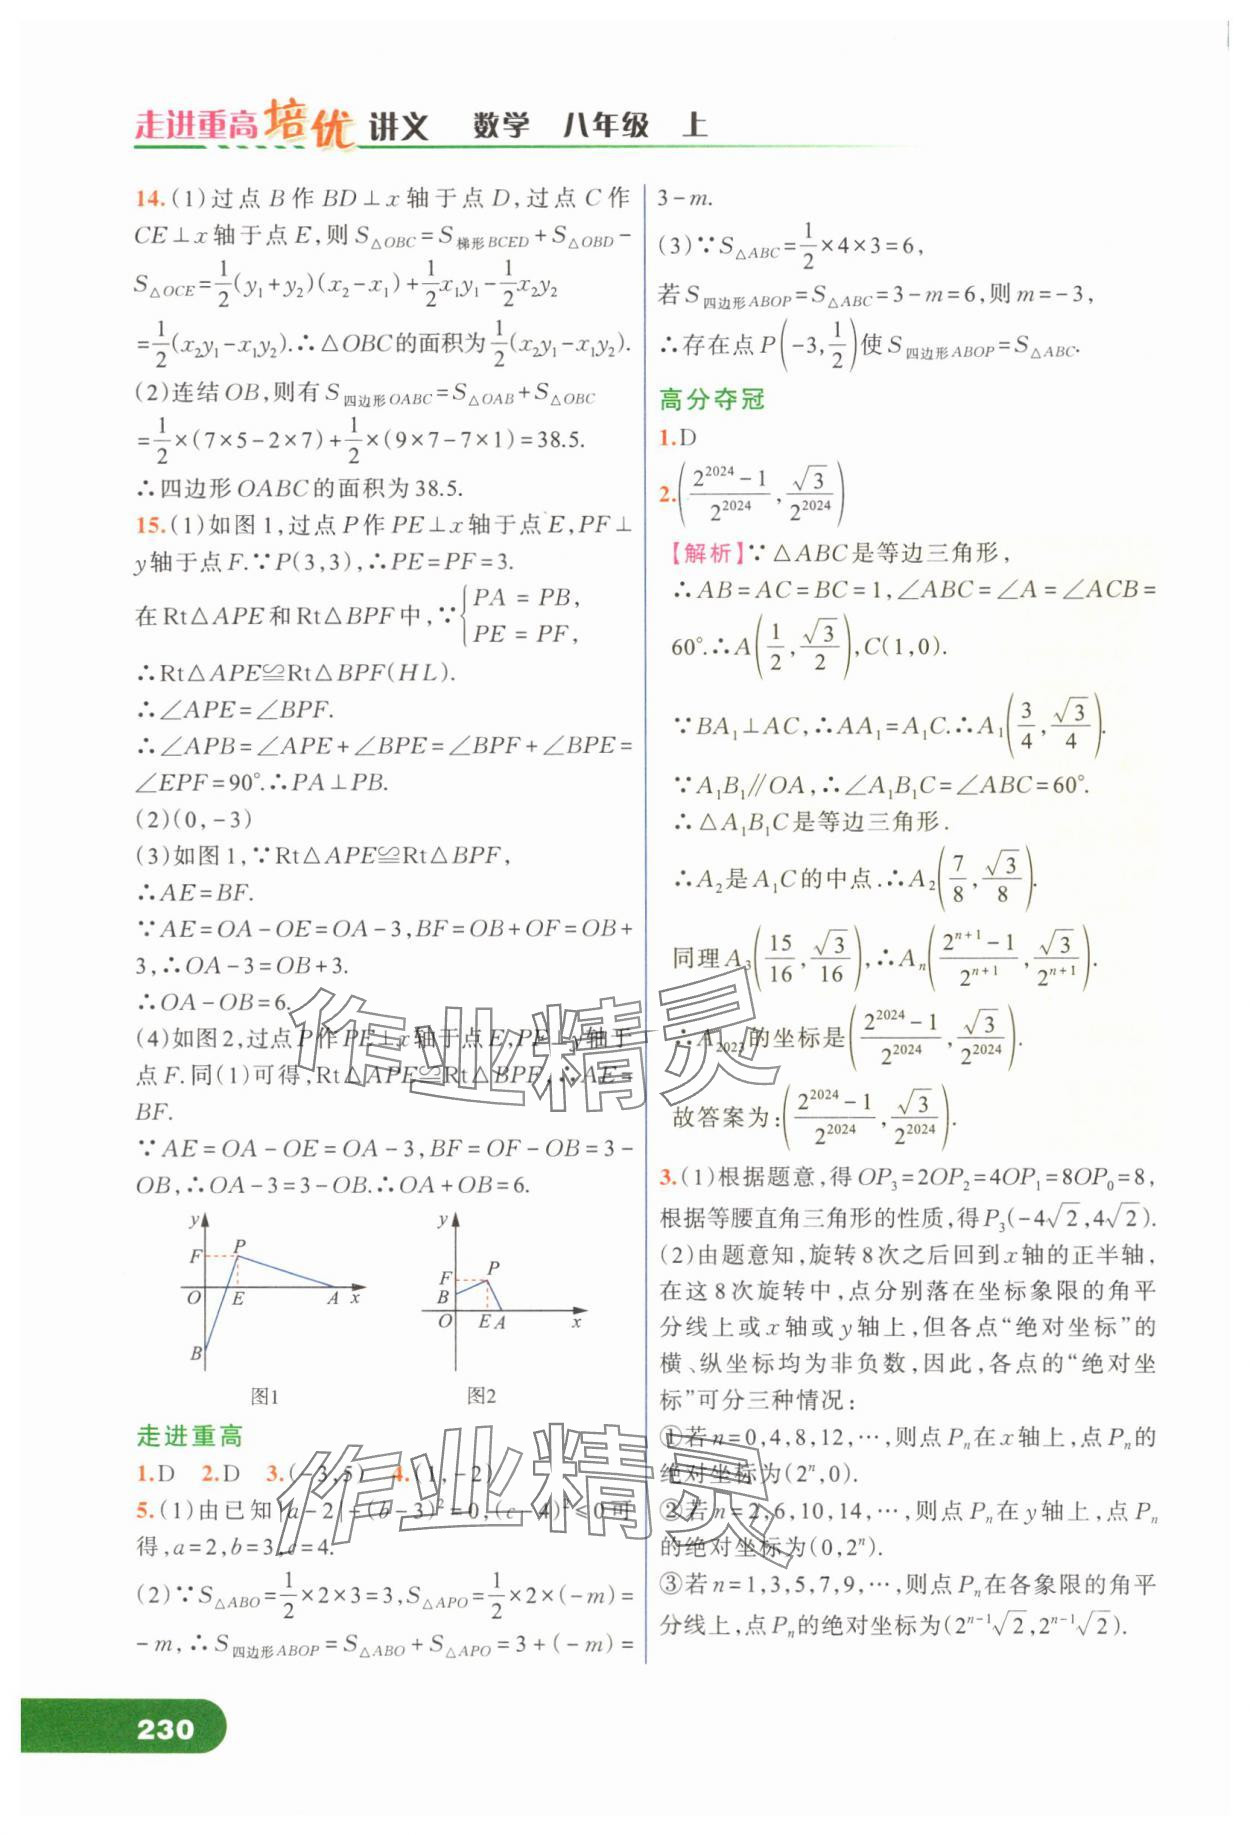 走进重高培优 讲义 数学 八年级 上
14.(1)过点B作BD⊥x轴于点D,过点C作
CE⊥x轴于点E,则S△OBC=S梯形BCED+S△OBD-
S△OCE=1/2(y₁+y₂)(x₂-x₁)+1/2x₁y₁-1/2x₂y₂
=1/2(x₂y₁-x₁y₂).∴△OBC的面积为1/2(x₂y₁-x₁y₂).
(2)连结OB,则有S四边形OABC=S△OAB+S△OBC
=1/2×(7×5-2×7)+1/2×(9×7-7×1)=38.5.
∴四边形OABC的面积为38.5.
15.(1)如图1,过点P作PE⊥x轴于点E,PF⊥
y轴于点F.∵P(3,3),∴PE=PF=3.
在Rt△APE和Rt△BPF中,∵{PA=PB,
PE=PF,
∴Rt△APE≌Rt△BPF(HL).
∴∠APE=∠BPF.
∴∠APB=∠APE+∠BPE=∠BPF+∠BPE=
∠EPF=90°.∴PA⊥PB.
(2)(0,-3)
(3)如图1,∵Rt△APE≌Rt△BPF,
∴AE=BF.
∵AE=OA-OE=OA-3,BF=OB+OF=OB+
3,∴OA-3=OB+3.
∴OA-OB=6.
(4)如图2,过点P作PE⊥x轴于点E,PF⊥y轴于
点F.同(1)可得,Rt△APE≌Rt△BPF,∴AE=
BF.
∵AE=OA-OE=OA-3,BF=OF-OB=3-
OB,∴OA-3=3-OB.∴OA+OB=6.
y F P O E A x B
图1
y F P B O E A x
图2
走进重高
1.D 2.D 3.(-3,5) 4.(1,-2)
5.(1)由已知|a-2|+(b-3)²=0,(c-4)²≤0可
得,a=2,b=3,c=4.
(2)∵S△ABO=1/2×2×3=3,S△APO=1/2×2×(-m)=
-m,∴S四边形ABOP=S△ABO+S△APO=3+(-m)=
3-m.
(3)∵S△ABC=1/2×4×3=6,
若S四边形ABOP=S△ABC=3-m=6,则m=-3,
∴存在点P(-3,1/2)使S四边形ABOP=S△ABC.
高分夺冠
1.D
2.((2²⁰²⁴-1)/2²⁰²⁴,√3/2²⁰²⁴)
【解析】∵△ABC是等边三角形,
∴AB=AC=BC=1,∠ABC=∠A=∠ACB=
60°.∴A(1/2,√3/2),C(1,0).
∵BA₁⊥AC,∴AA₁=A₁C.∴A₁(3/4,√3/4).
∵A₁B₁∥OA,∴∠A₁B₁C=∠ABC=60°.
∴△A₁B₁C是等边三角形.
∴A₂是A₁C的中点.∴A₂(7/8,√3/8).
同理A₃(15/16,√3/16),∴Aₙ((2ⁿ⁺¹-1)/2ⁿ⁺¹,√3/2ⁿ⁺¹).
∴A₂₀₂₃的坐标是((2²⁰²⁴-1)/2²⁰²⁴,√3/2²⁰²⁴).
故答案为:((2²⁰²⁴-1)/2²⁰²⁴,√3/2²⁰²⁴).
3.(1)根据题意,得OP₃=2OP₂=4OP₁=8OP₀=8,
根据等腰直角三角形的性质,得P₃(-4√2,4√2).
(2)由题意知,旋转8次之后回到x轴的正半轴,
在这8次旋转中,点分别落在坐标象限的角平
分线上或x轴或y轴上,但各点“绝对坐标”的
横、纵坐标均为非负数,因此,各点的“绝对坐
标”可分三种情况:
①若n=0,4,8,12,…,则点Pₙ在x轴上,点Pₙ的
绝对坐标为(2ⁿ,0).
②若n=2,6,10,14,…,则点Pₙ在y轴上,点Pₙ
的绝对坐标为(0,2ⁿ).
③若n=1,3,5,7,9,…,则点Pₙ在各象限的角平
分线上,点Pₙ的绝对坐标为(2ⁿ⁻¹√2,2ⁿ⁻¹√2).
230
作业精灵
作业精灵